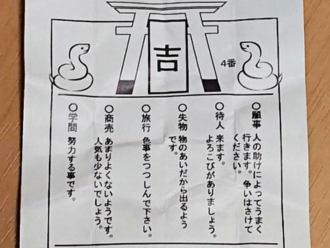 吉
4番
○願事 人の助けによってうまく
行きます。争いはさけて
ください。
○待人 来ます。
よろこびがありましょう。
○失物 物のあいだから出るよう
です。
○旅行 色事をつつしんで下さい。
○商売 あまりよくないようです。
人気も少ないでしょう。
○学問 努力する事です。